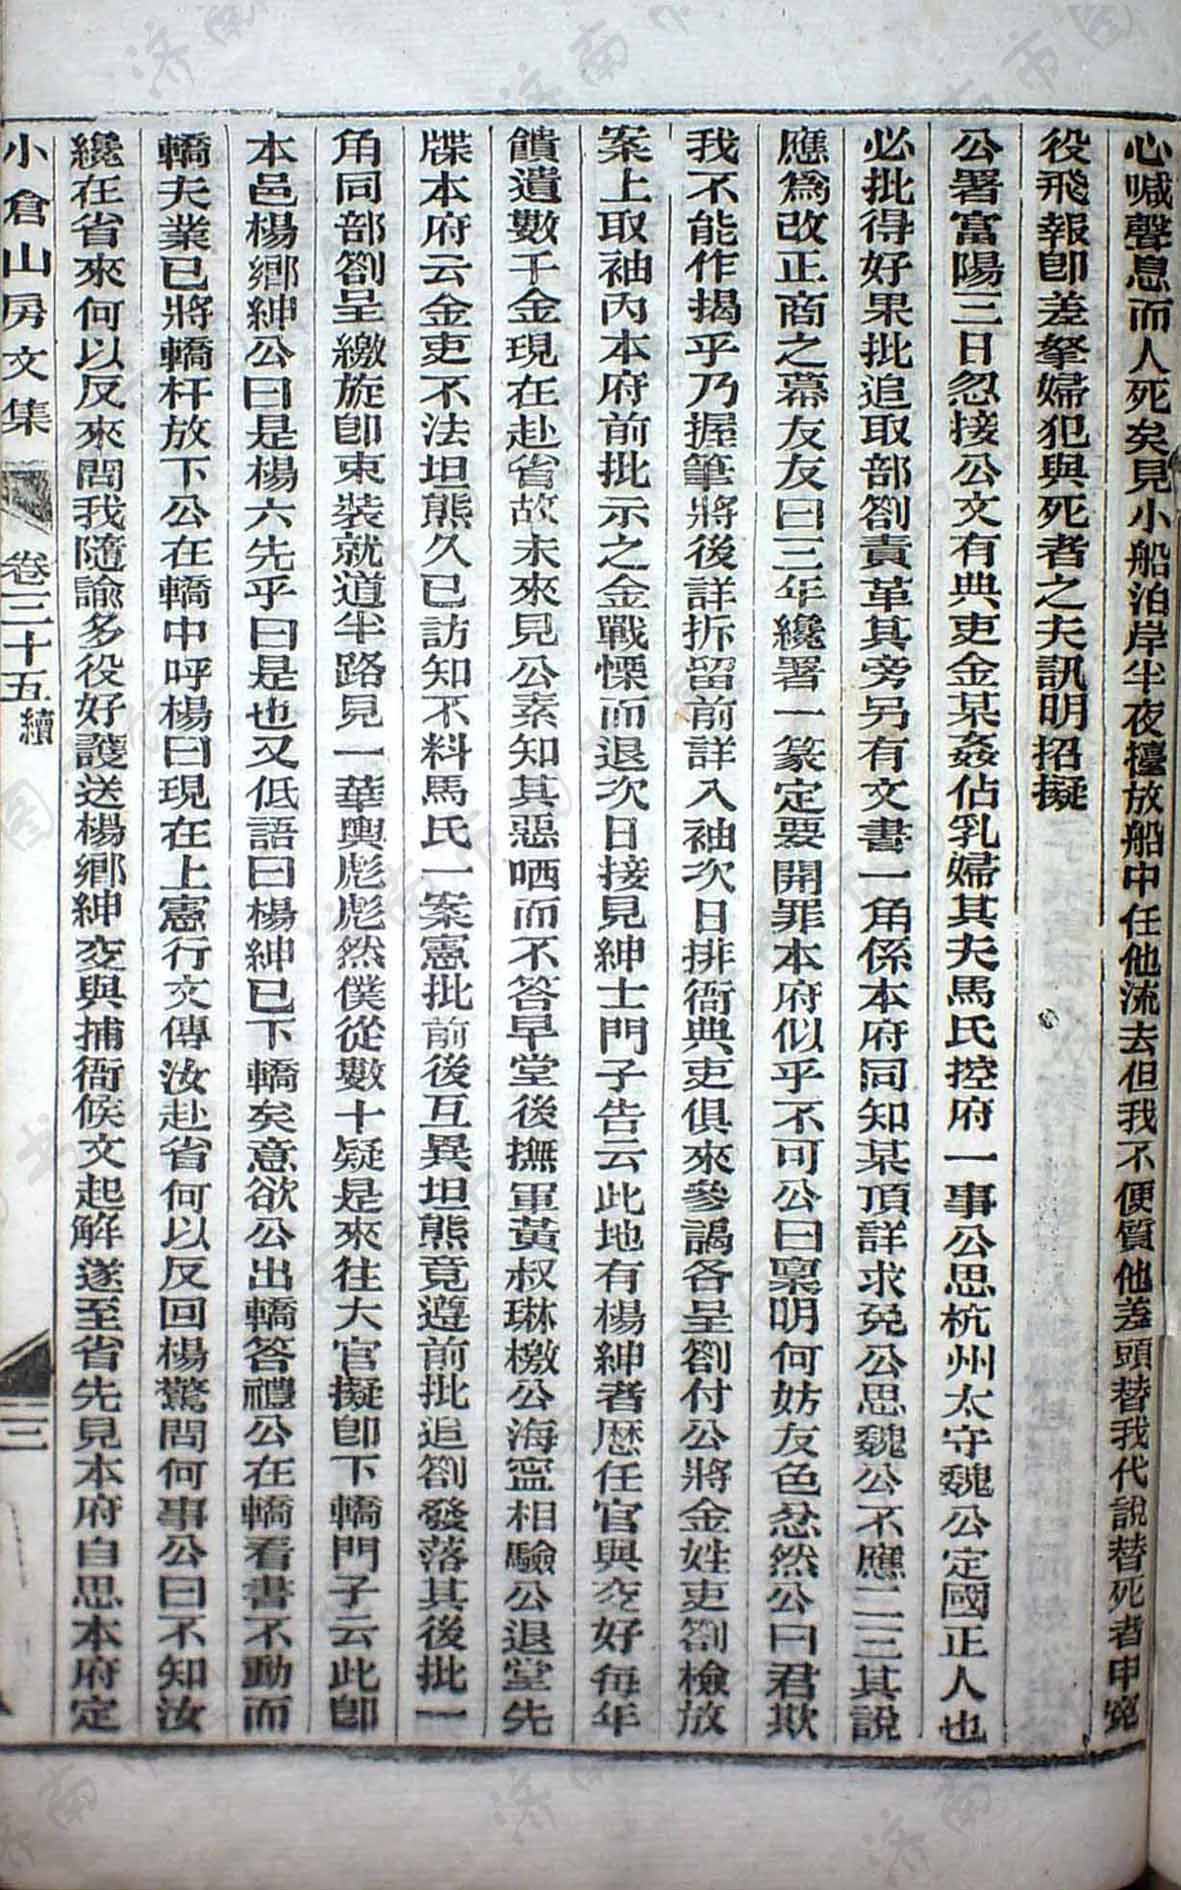 心喊聲息而人死矣見小船泊岸半夜擡放船中任他流去但我不便質他差頭替我代說替死者申冤
役飛報卽差拏婦犯與死者之夫訊明招擬
公署富陽三日忽接公文有典吏金某姦佔乳婦其夫馬氏控府一事公思杭州太守魏公定國正人也
必批得好果批追取部劄責革其旁另有文書一角係本府同知某頂詳求免公思魏公不應二三其說
應爲改正商之幕友友曰三年纔署一篆定要開罪本府似乎不可公曰稟明何妨友色忿然公曰君欺
我不能作揭乎乃握筆將後詳拆留前詳入袖次日排衙典吏俱來參謁各呈劄付公將金姓吏劄檢放
案上取袖內本府前批示之金戰慄而退次日接見紳士門子告云此地有楊紳者歷任官與交好每年
饋遺數千金現在赴省故未來見公素知其惡哂而不答早堂後撫軍黃叔琳檄公海寧相驗公退堂先
牒本府云金吏不法坦熊久已訪知不料馬氏一案憲批前後互異坦熊竟遵前批追劄發落其後批一
角同部劄呈繳旋卽束裝就道半路見一華輿彪彪然僕從數十疑是來往大官擬卽下轎門子云此卽
本邑楊鄉紳公曰是楊六先乎曰是也又低語曰楊紳已下轎矣意欲公出轎答禮公在轎看書不動而
轎夫業已將轎杆放下公在轎中呼楊曰現在上憲行文傳汝赴省何以反回楊驚問何事公曰不知汝
纔在省來何以反來問我隨諭多役好護送楊鄉紳交與捕衙候文起解遂至省先見本府自思本府定
小倉山房文集 卷三十五續 三